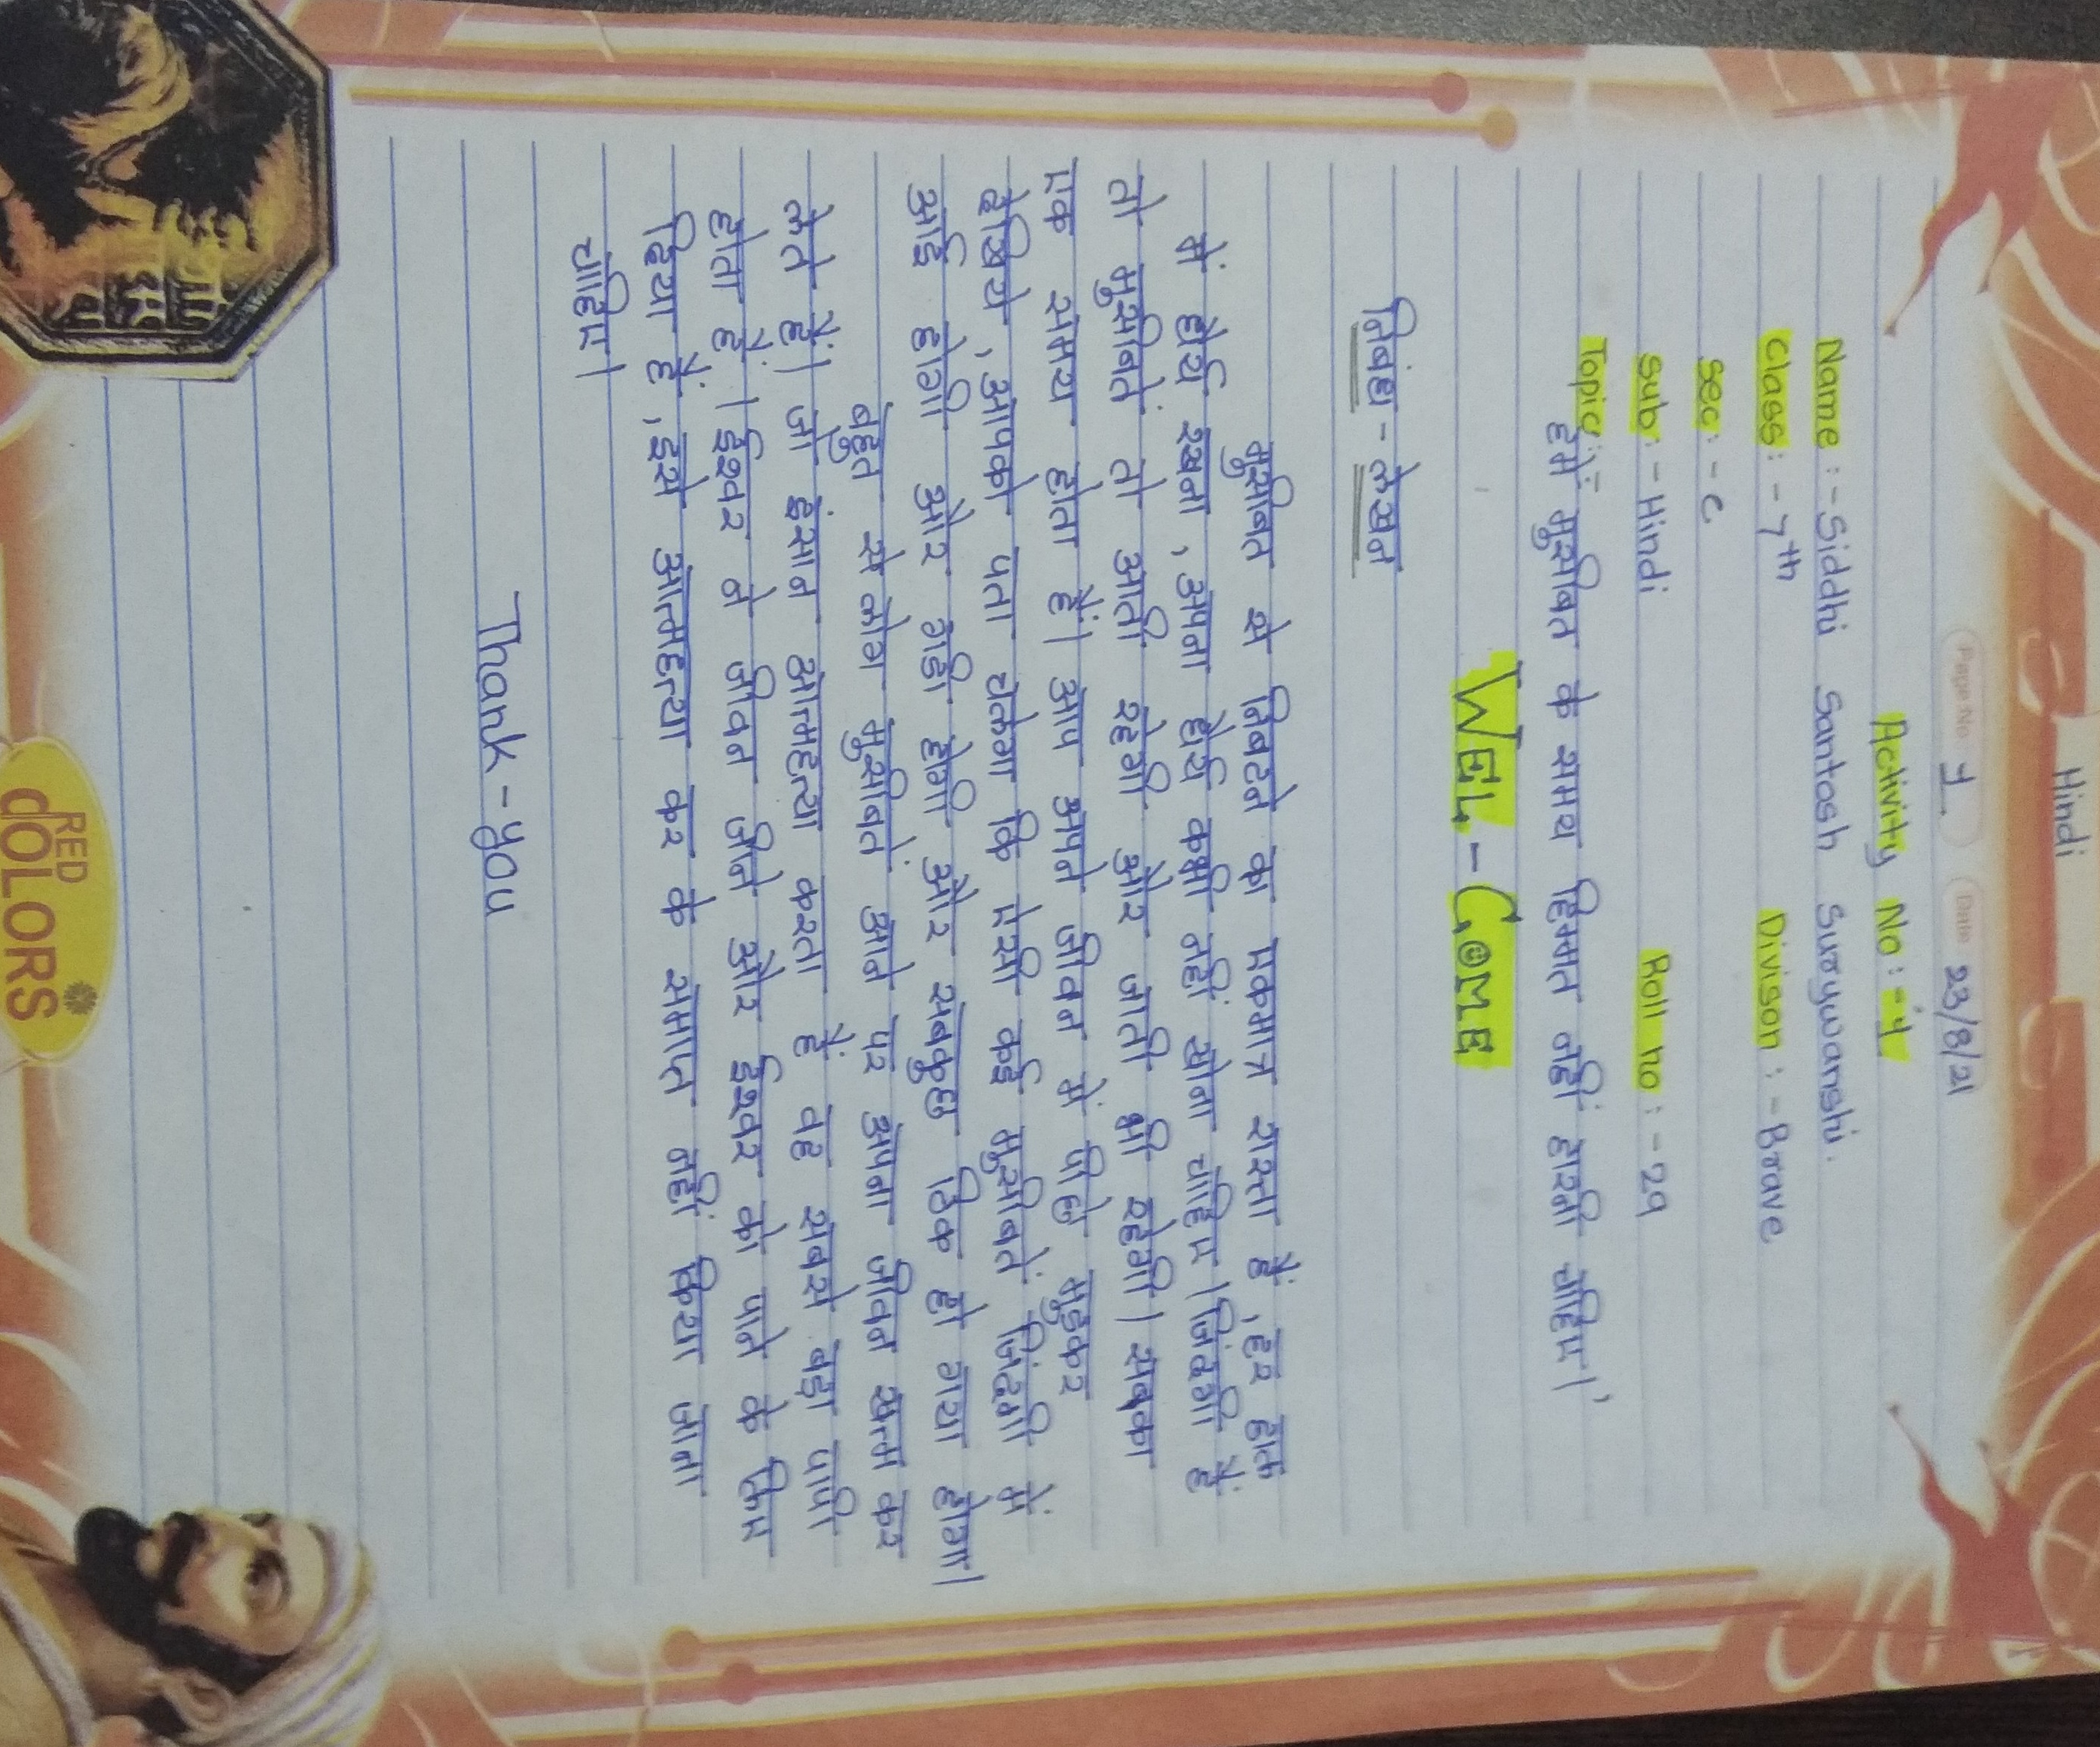 Hindi
Page No. 1. Date 23/8/21
Activity No:-1
Name :- Siddhi Santosh Suryawanshi.
Class :- 7th Divison :- Brave
Sec :- C
Sub :- Hindi Roll no :- 29
Topic :-
हमें मुसीबत के समय हिम्मत नहीं हारनी चाहिए।'
WEL - COME
निबंध - लेखन
मुसीबत से निबटने का एकमात्र रास्ता हैं , हर हाल
में धैर्य रखना , अपना धैर्य कभी नहीं खोना चाहिए । जिंदगी हैं
तो मुसीबतें तो आती रहेगी और जाती भी रहेगी। सबका
एक समय होता हैं। आप अपने जीवन में पीछे मुड़कर
देखिये , आपको पता चलेगा कि ऐसी कई मुसीबतें जिंदगी में
आई होगी और गई होगी और सबकुछ ठिक हो गया होगा।
बहुत से लोग मुसीबतें आने पर अपना जीवन खत्म कर
लेते हैं। जो इंसान आत्महत्या करता हैं वह सबसे बड़ा पापी
होता हैं । ईश्वर ने जीवन जीने और ईश्वर को पाने के लिए
दिया हैं , इसे आत्महत्या कर के समाप्त नहीं किया जाना
चाहिए।
Thank - you
RED
COLORS